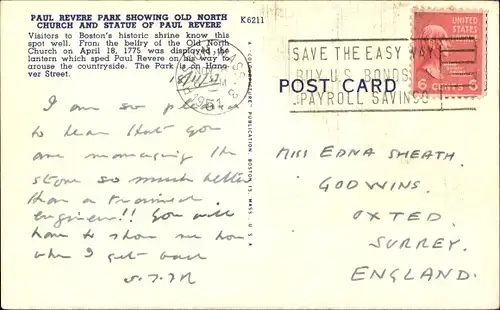 PAUL REVERE PARK SHOWING OLD NORTH
CHURCH AND STATUE OF PAUL REVERE
K6211
Visitors to Boston's historic shrine know this
spot well. From the belfry of the Old North
Church on April 18, 1775 was displayed the
lantern which sped Paul Revere on his way to
arouse the countryside. The Park is on Hano-
ver Street.
I am so pleased
to hear that you
are managing the
stove so much better
than a trained
engineer!! You will
have to show me how
when I get back
PUBLICATION BOSTON 15, MASS., U. S. A.
MASS
1951
SAVE THE EASY WAY
BUY U.S. BONDS
PAYROLL SAVINGS
6 CENTS 6
POST CARD
MISS EDNA SHEATH.
GODWINS.
OXTED.
SURREY.
ENGLAND.